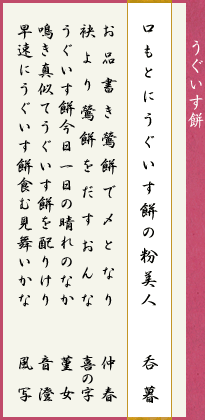 うぐいす餅
口もとにうぐいす餅の粉美人　呑暮
お品書き鶯餅で〆となり　仲春
袂より鶯餅をだすおんな　喜の字
うぐいす餅今日一日の晴れのなか　菫女
鳴き真似てうぐいす餅を配りけり　音澄
早速にうぐいす餅食む見舞いかな　風写